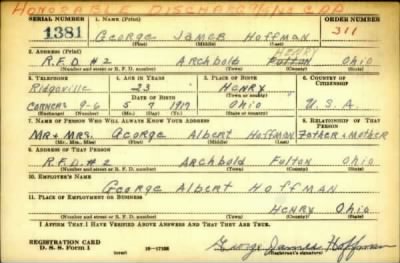 HONORABLE DISCHARGE
SERIAL NUMBER 1. NAME (Print) ORDER NUMBER
1381 George James Hoffman 311
(First) (Middle) (Last)
2. ADDRESS (Print) HENRY
R.F.D. #2 Archbold Fulton Ohio
(Number and street or R. F. D. number) (Town) (County) (State)
3. TELEPHONE 4. AGE IN YEARS 5. PLACE OF BIRTH 6. COUNTRY OF CITIZENSHIP
Ridgeville 23 Henry
DATE OF BIRTH (Town or county)
Corners 9-6 5 7 1917 Ohio U.S.A.
(Exchange) (Number) (Mo.) (Day) (Yr.) (State or country)
7. NAME OF PERSON WHO WILL ALWAYS KNOW YOUR ADDRESS 8. RELATIONSHIP OF THAT PERSON
Mr & Mrs. George Albert Hoffman Father & Mother
(Mr., Mrs., Miss) (First) (Middle) (Last)
9. ADDRESS OF THAT PERSON
R.F.D. #2 Archbold Fulton Ohio
(Number and street or R. F. D. number) (Town) (County) (State)
10. EMPLOYER'S NAME
George Albert Hoffman
11. PLACE OF EMPLOYMENT OR BUSINESS
Henry Ohio
(Number and street or R. F. D. number) (Town) (County) (State)
I AFFIRM THAT I HAVE VERIFIED ABOVE ANSWERS AND THAT THEY ARE TRUE.
REGISTRATION CARD
D. S. S. Form 1 (over) George James Hoffman
(Registrant's signature)